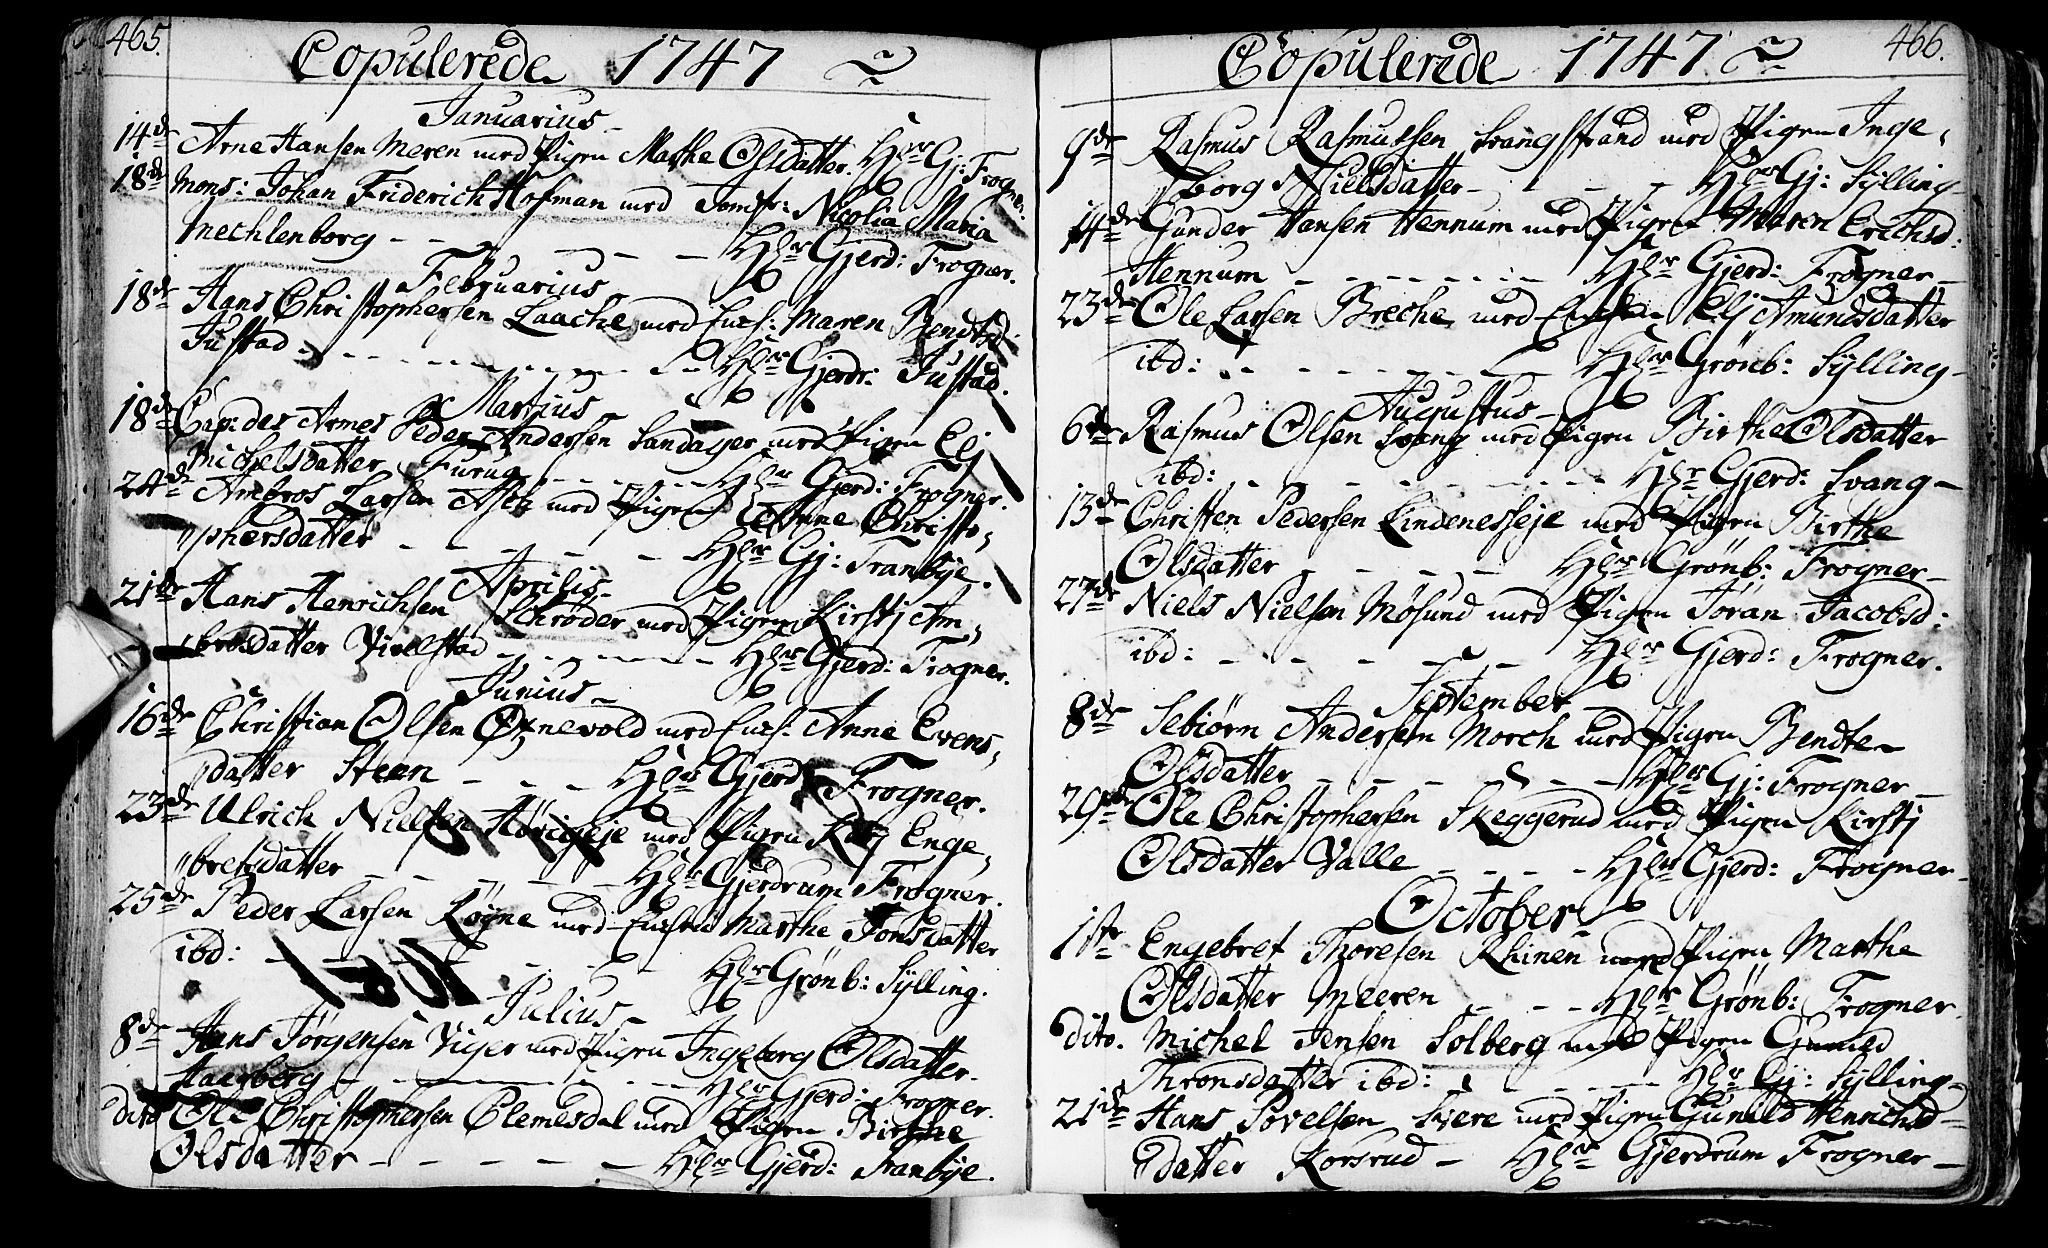 465.
Copulerede 1747
Januarius
14de Arne Hansen Meren med Pigen Marthe Olsdatter. Hr Gj: Frogner.
18de Mons: Johan Friderich Hofman med Jomfr: Nicolia Maria
Mechlenborg - - - - - Hr Gjerd: Frogner.
Februarius
18de Hans Christophersen Laache med Ench: Maren Bendtsd:
Justad - - - - - Hr Gjerdr: Justad.
Martius
18de Cap: des Armes Peder Andersen Sandager med Pigen Elj
Michelsdatter Furug - - - - Hr Gjerd: Frogner.
24de Ambros Larsen Aseb med Pigen Anne Christo,
„phersdatter - - - - - Hr Gj: Tranbye.
Aprilis
21de Hans Henrichsen Schrøder med Pigen Kirstj Am,
„brosdatter Vivelstad - - - - Hr Gjerd: Frogner.
Junius
16de Christian Olsen Ørnevold med Ench: Anne Evens,
„datter Steen - - - Hr Gjerd: Frogner.
23de Ulrich Nielsen Hørigeje med Pigen Enge,
„bretsdatter - - - - - Hr Gjerdrum Frogner.
25de Peder Larsen Løgne med Enchen Marthe Jonsdatter
ibd: - - - - - Hr Grønb: Sylling.
Julius
8de Hans Jørgensen Viger med Pigen Ingeborg Olsdatter
Haagberg - - - - - Hr Gjerd: Frogner.
dito Ole Christophersen Clemesdal med Pigen Birthe
Olsdatter - - - - - Hr Gjerd: Tranbye.
466.
Copulerede 1747
9de Rasmus Rasmussen Svangstrand med Pigen Inge,
„borg Nielsdatter - - - - Hr Gj: Sylling
14de Gunder Hansen Hennum med Pigen Maren Erichsd:
Hennum - - - - - Hr Gjerd: Frogner
23de Ole Larsen Breche med Enchen Elj Amundsdatter
ibd: - - - - - Hr Grønb: Sylling
Augustus
6te Rasmus Olsen Svang med Pigen Birthe Olsdatter
ibd: - - - - - Hr Gjerd: Svang
13de Christen Pedersen Lindenesseje med Pigen Birthe
Olsdatter - - - - Hr Grønb: Frogner
27de Niels Nielsen Møsund med Pigen Jøran Jacobsd:
ibd: - - - - - Hr Gjerd: Frogner.
September
8de Sebiørn Andersen Morch med Pigen Bendte
Olsdatter - - - - - Hr Gj: Frogner
29de Ole Christophersen Skeggerud med Pigen Kirstj
Olsdatter Valle - - - - Hr Gjerd: Frogner
October
1ste Engebret Thoresen Rhinen med Pigen Marthe
Olsdatter Meeren - - - Hr Grønb: Frogner.
dito. Michel Jensen Solberg med Pigen Guneld
Thronsdatter ibd: - - - - Hr Gj: Sylling
21de Hans Povelsen Svere med Pigen Guneld Henrichsd
„datter Korsrud - Hr Gjerdrum Frogner